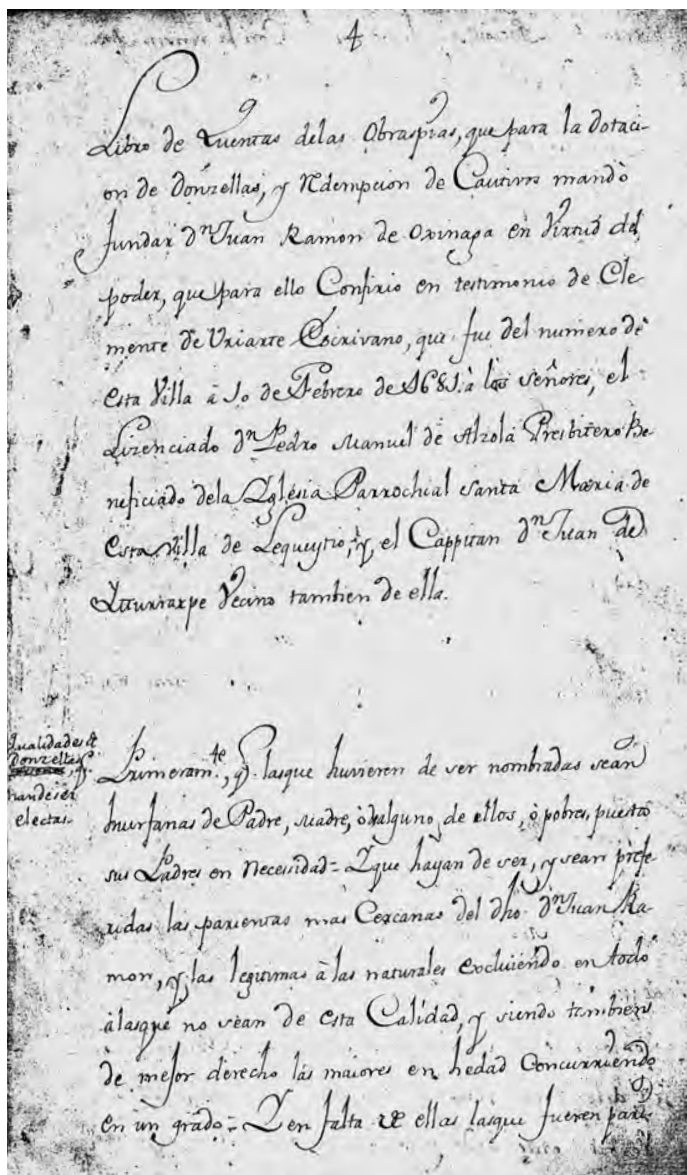 4
Libro de Quentas delas Obraspias, que para la dotaci-
on de donzellas, y Rdempcion de Cautivos mandò
fundar dn Juan Ramon de Oxinaga en Virtud del
poder, que para ello Confirio en testimonio de Cle-
mente de Uriarte Escrivano, que fue del numero de
esta Villa à 10 de Febrero de 1681 à los señores, el
Lizenciado dn Pedro Manuel de Alzola Presbitero Be-
neficiado dela Yglesia Parrochial Santa Maria de
esta Villa de Lequeytio, y, el Cappitan dn Juan de
Vecino tambien de ella.
qualidades
donzellas, q.
han de ser
electas.
Primeramte, q. lasque huvieren de ser nombradas sean
huerfanas de Padre, Madre, ò de alguno de ellos, ò pobres, puesto
sus Padres en necessidad = Y que hayan de ser, y sean prefe-
ridas las parientas mas Cercanas del dho dn Juan Ra-
mon, y las legitimas à las naturales excluiendo en todo
àlasque no sean de esta Calidad, y siendo tambien
de mejor derecho las maiores en hedad Concurriendo
en un grado = Y en falta de ellas lasque fueren pari-